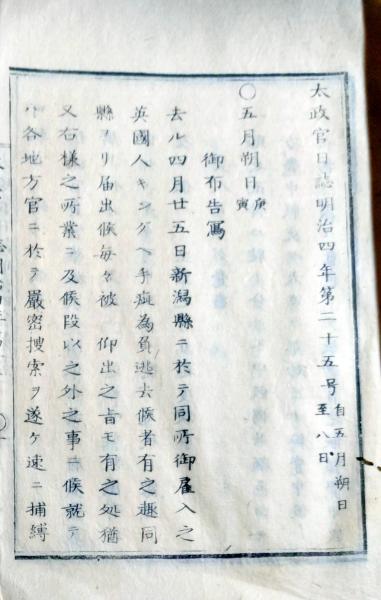 太政官日誌明治四年第二十五号 自五月朔日
至八日
〇五月朔日 庚寅
御布告寫
去ル四月廿五日新潟縣ニ於テ同所御雇入之
英國人キングヘ手疵為負逃去候者有之趣同
縣ヨリ届出候毎々被 仰出之旨モ有之処猶
又右様之所業ニ及候段以之外之事ニ候就テ
ハ各地方官ニ於テ嚴密捜索ヲ遂ケ速ニ捕縛